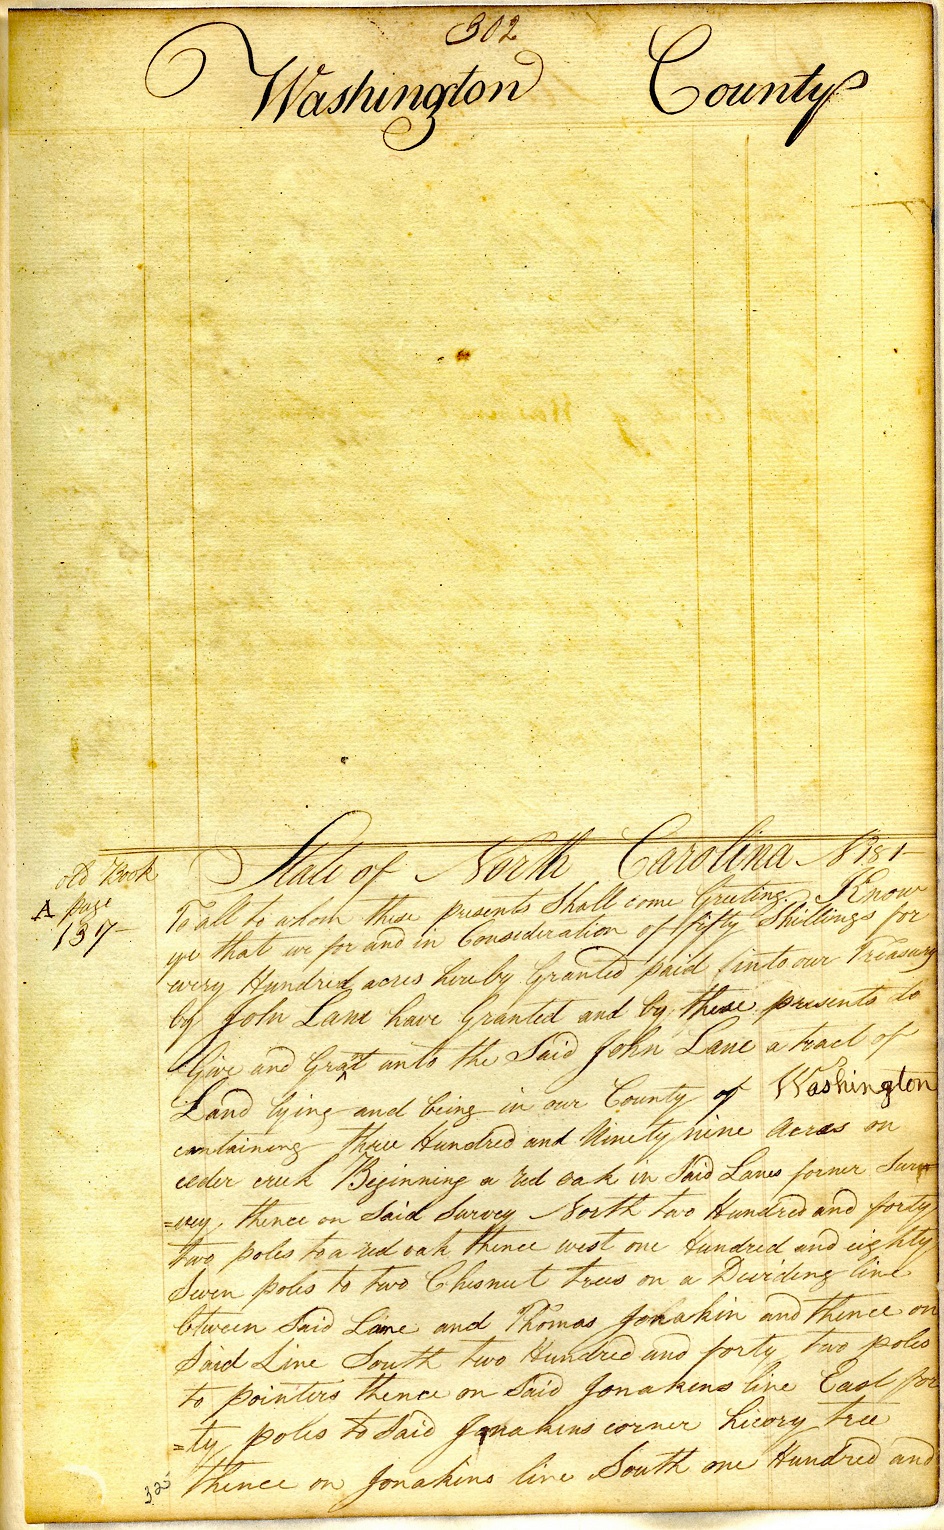 302
Washington County
State of North Carolina No 181
old Book
A page
137
To all to whom these presents Shall come Greeting. Know
ye that we for and in Consideration of fifty Shillings for
every Hundred acres hereby Granted paid into our Treasury
by John Lane have Granted and by these presents do
Give and Grant unto the Said John Lane a tract of
Land lying and being in our County of Washington
containing three Hundred and Ninety nine acres on
ceder creek Beginning a red oak in Said Lanes former Sur
=vey, thence on Said Survey North two Hundred and forty
two poles to a red oak thence west one Hundred and eighty
Seven poles to two Chesnut trees on a Dividing line
btween Said Lane and Thomas Jonakin and thence on
Said Line South two Hundred and forty two poles
to pointers thence on Said Jonakens line East for
=ty poles to Said Jonakins corner hicory tree
thence on Jonakins line South one Hundred and
32